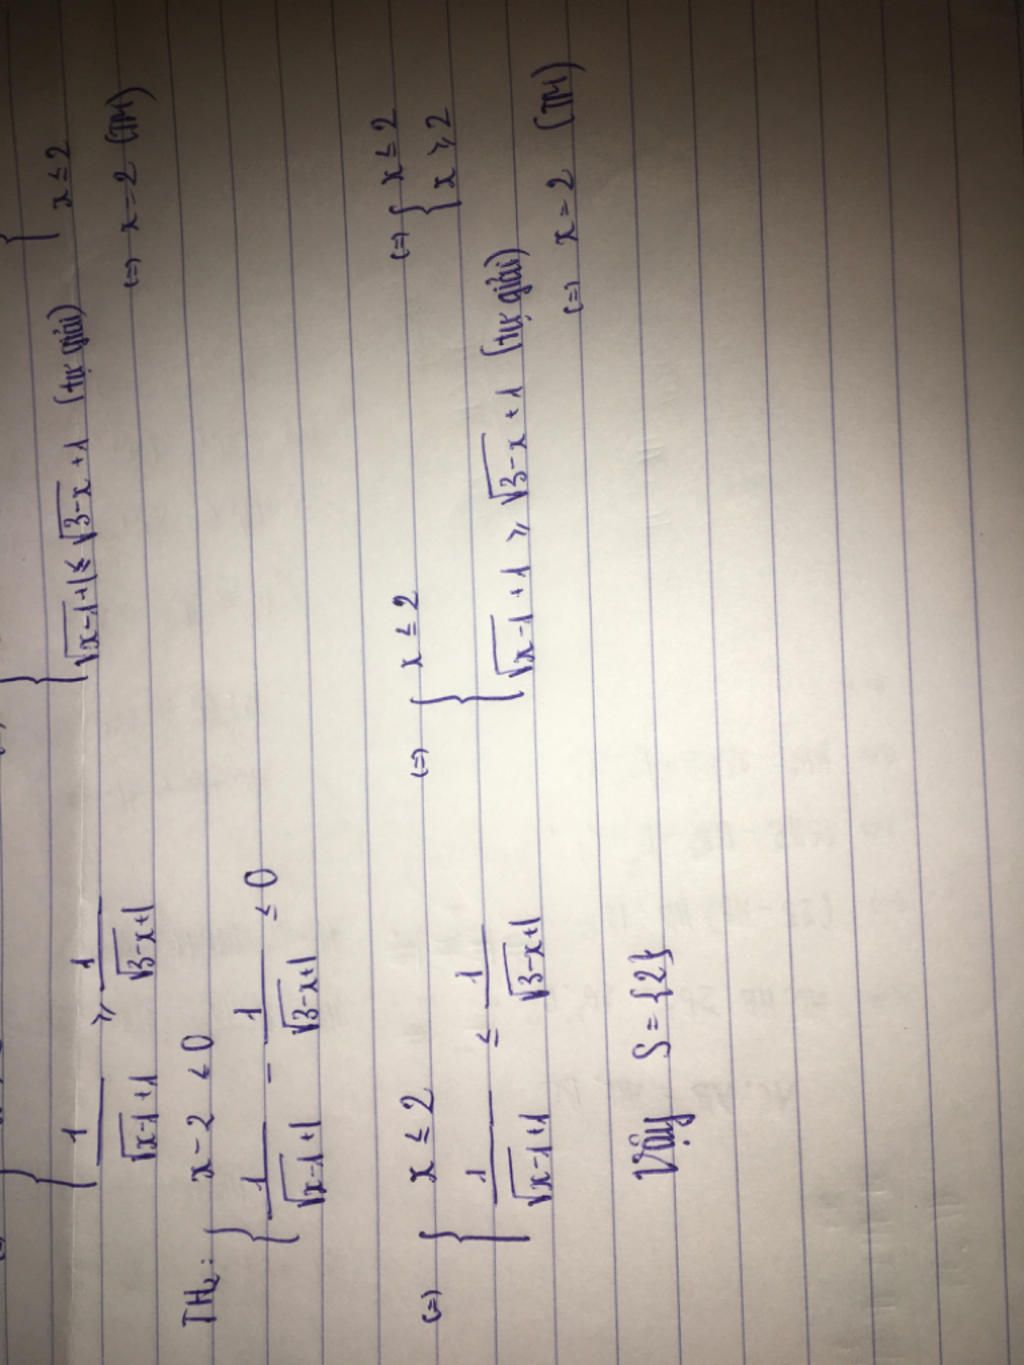 1/(√(x-1)+1) ≥ 1/(√(3-x)+1)
{ √(x-1)+1 ≤ √(3-x)+1 (tự giải)
{ x ≤ 2
(=) x=2 (TM)
TH₂: { x-2 ≤ 0
1/(√(x-1)+1) - 1/(√(3-x)+1) ≤ 0
(=) { x ≤ 2 (=) { x ≤ 2 (=) { x ≤ 2
1/(√(x-1)+1) ≤ 1/(√(3-x)+1) √(x-1)+1 ≥ √(3-x)+1 (tự giải) x ≥ 2
(=) x=2 (TM)
Vậy S={2}